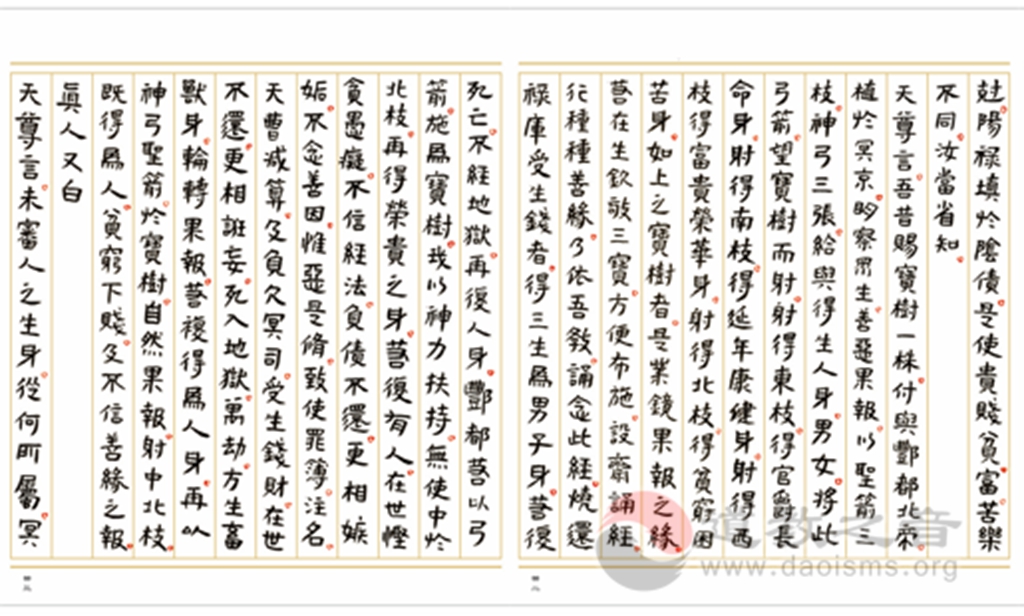 陽祿填於陰債是使貴賤貧富苦樂
不同汝當省知
天尊言吾昔賜寶樹一株付與酆都北帝
植於冥京明察眾生善惡果報以聖箭三
枝神弓三張給與得生人身男女將此
弓箭望寶樹而射射得東枝得官爵長
命身射得南枝得延年康健身射得西
枝得富貴榮華身射得北枝得貧窮困
苦身如上之寶樹者是業鏡果報之緣
若在生欽敬三寶方便布施設齋誦經
行種種善緣乃依吾教誦念此經燒還
祿庫受生錢者得三生爲男子身若復
死亡不經地獄再復人身酆都若以弓
箭施爲寶樹我以神力扶持無使中於
北枝再得榮貴之身若復有人在世慳
貪愚癡不信經法負債不還更相嫉
妬不念善因惟惡是脩致使罪簿注名
天曹減算及負欠冥司受生錢財在世
不還更相誑妄死入地獄萬劫方生畜
獸身輪轉果報若複得爲人身再以
神弓聖箭於寶樹自然果報射中北枝
既得爲人貧窮下賤及不信善緣之報
真人又白
天尊言未審人之生身從何所屬冥
道教之音
www.daoisms.org